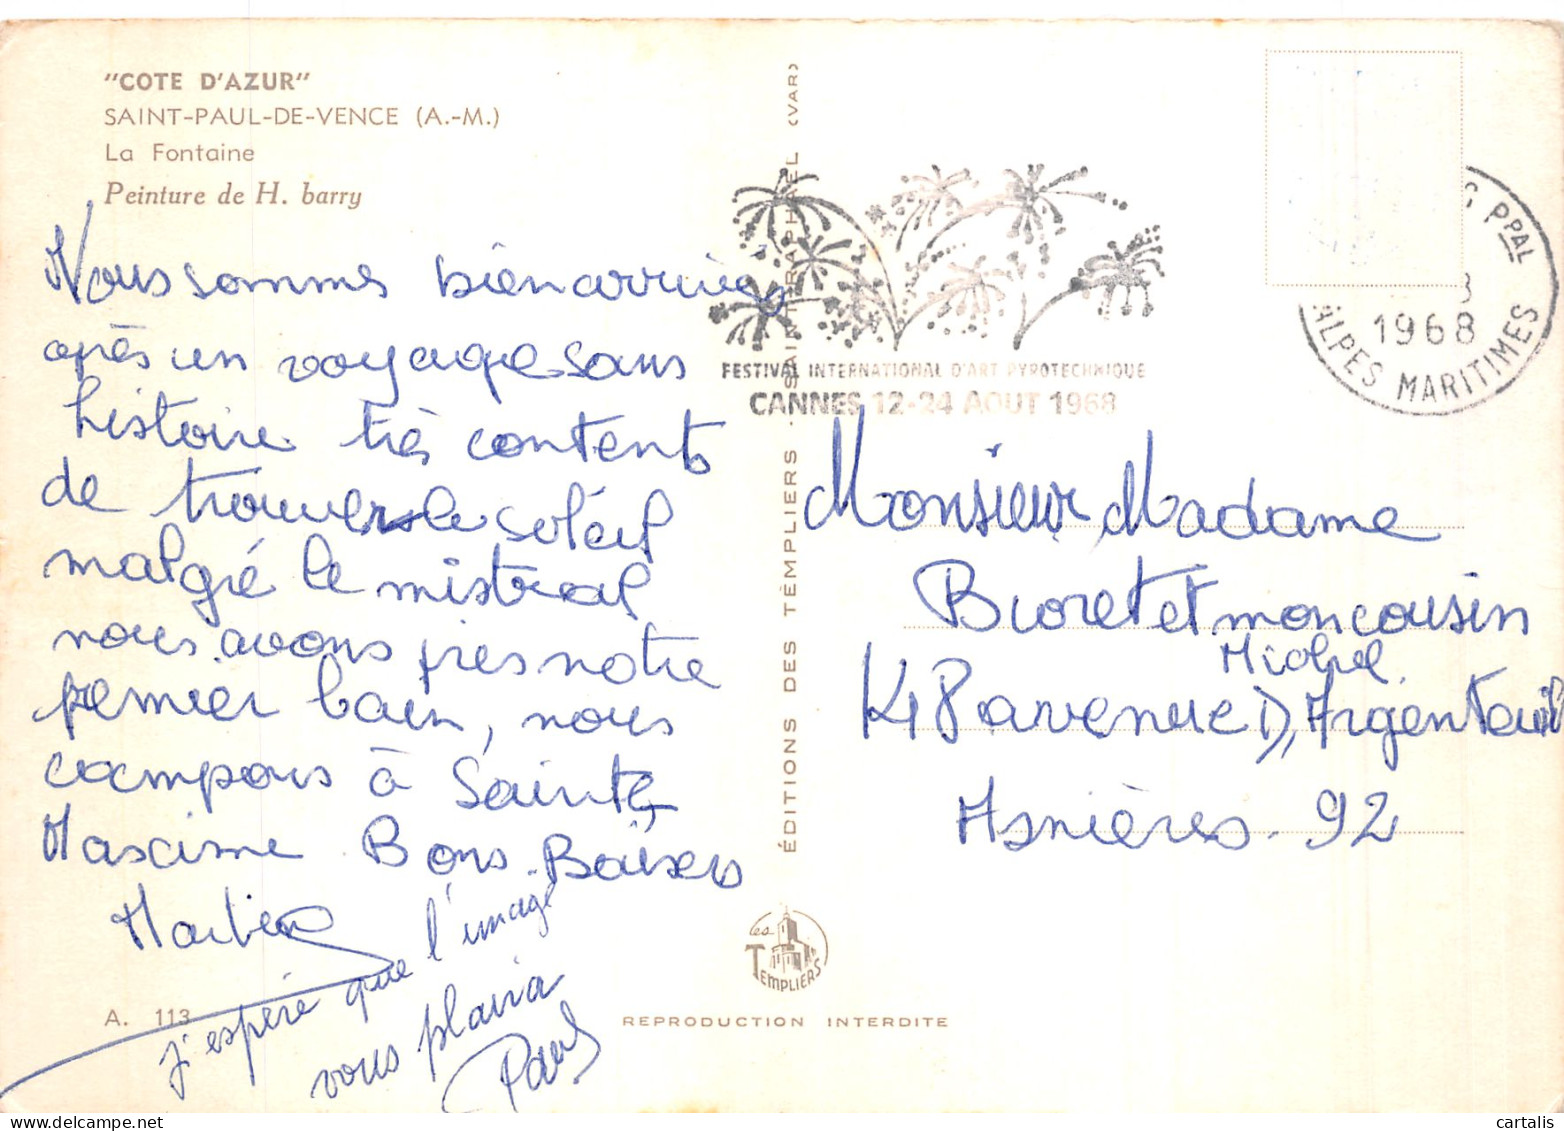 "COTE D'AZUR"
SAINT-PAUL-DE-VENCE (A.-M.)
La Fontaine
Peinture de H. barry
Nous sommes bien arrivés
après un voyage sans
histoire très contents
de trouver le soleil
malgré le mistral
nous avons pris notre
premier bain, nous
campons à Sainte
Maxime Bons Baisers
j'espère que l'image
vous plaira
Paul
A. 113
ÉDITIONS DES TEMPLIERS - SAINT-RAPHAEL (VAR)
les
TEMPLIERS
REPRODUCTION INTERDITE
FESTIVAL INTERNATIONAL D'ART PYROTECHNIQUE
CANNES 12-24 AOUT 1968
PPAL
1968
ALPES MARITIMES
Monsieur Madame
Bioret et mon cousin
Michel
avenue D, Argenteuil
Asnières. 92
cartalis
www.delcampe.net